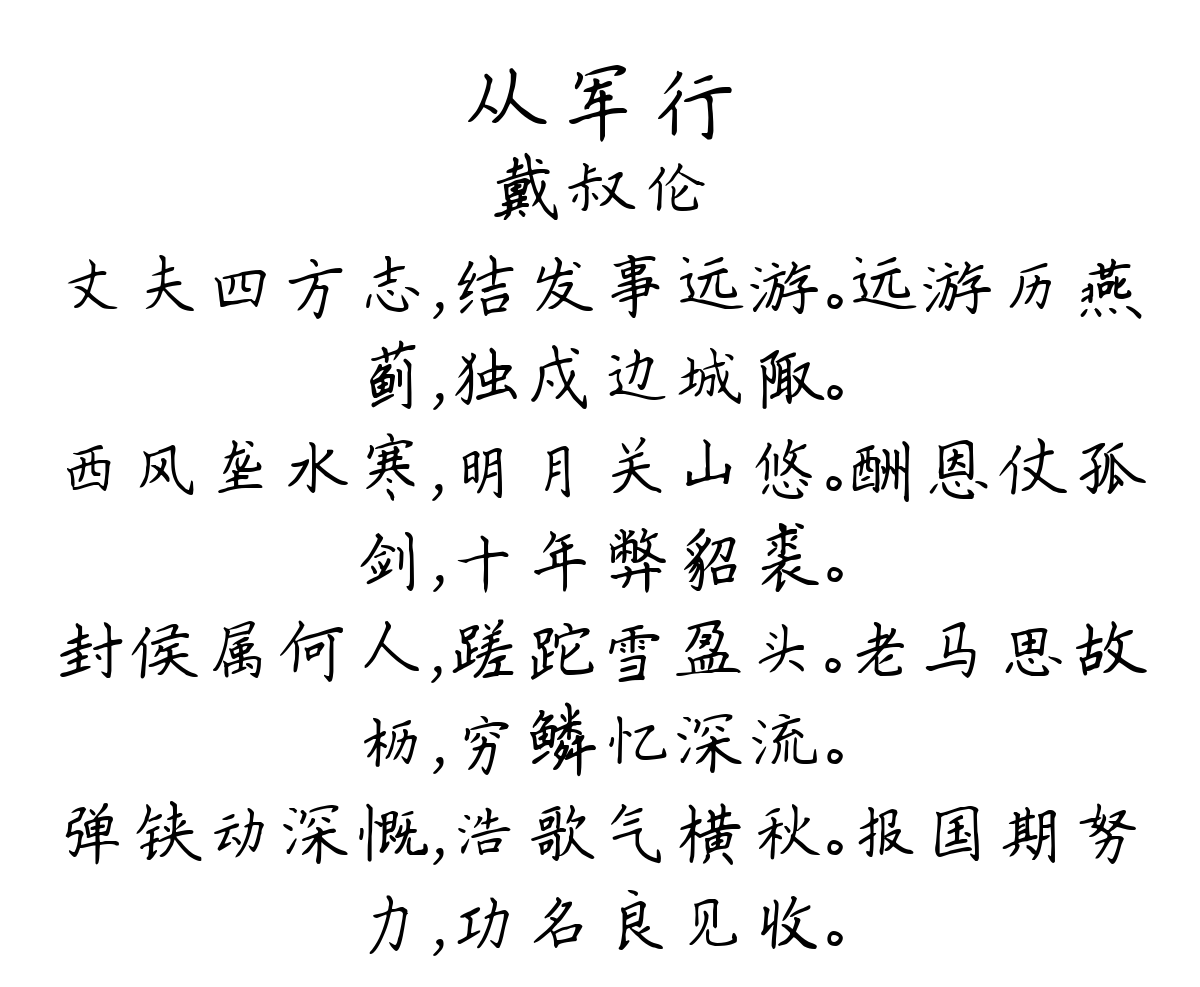 从军行
戴叔伦
丈夫四方志,结发事远游。远游历燕
蓟,独戍边城陬。
西风垄水寒,明月关山悠。酬恩仗孤
剑,十年弊貂裘。
封侯属何人,蹉跎雪盈头。老马思故
枥,穷鳞忆深流。
弹铗动深慨,浩歌气横秋。报国期努
力,功名良见收。